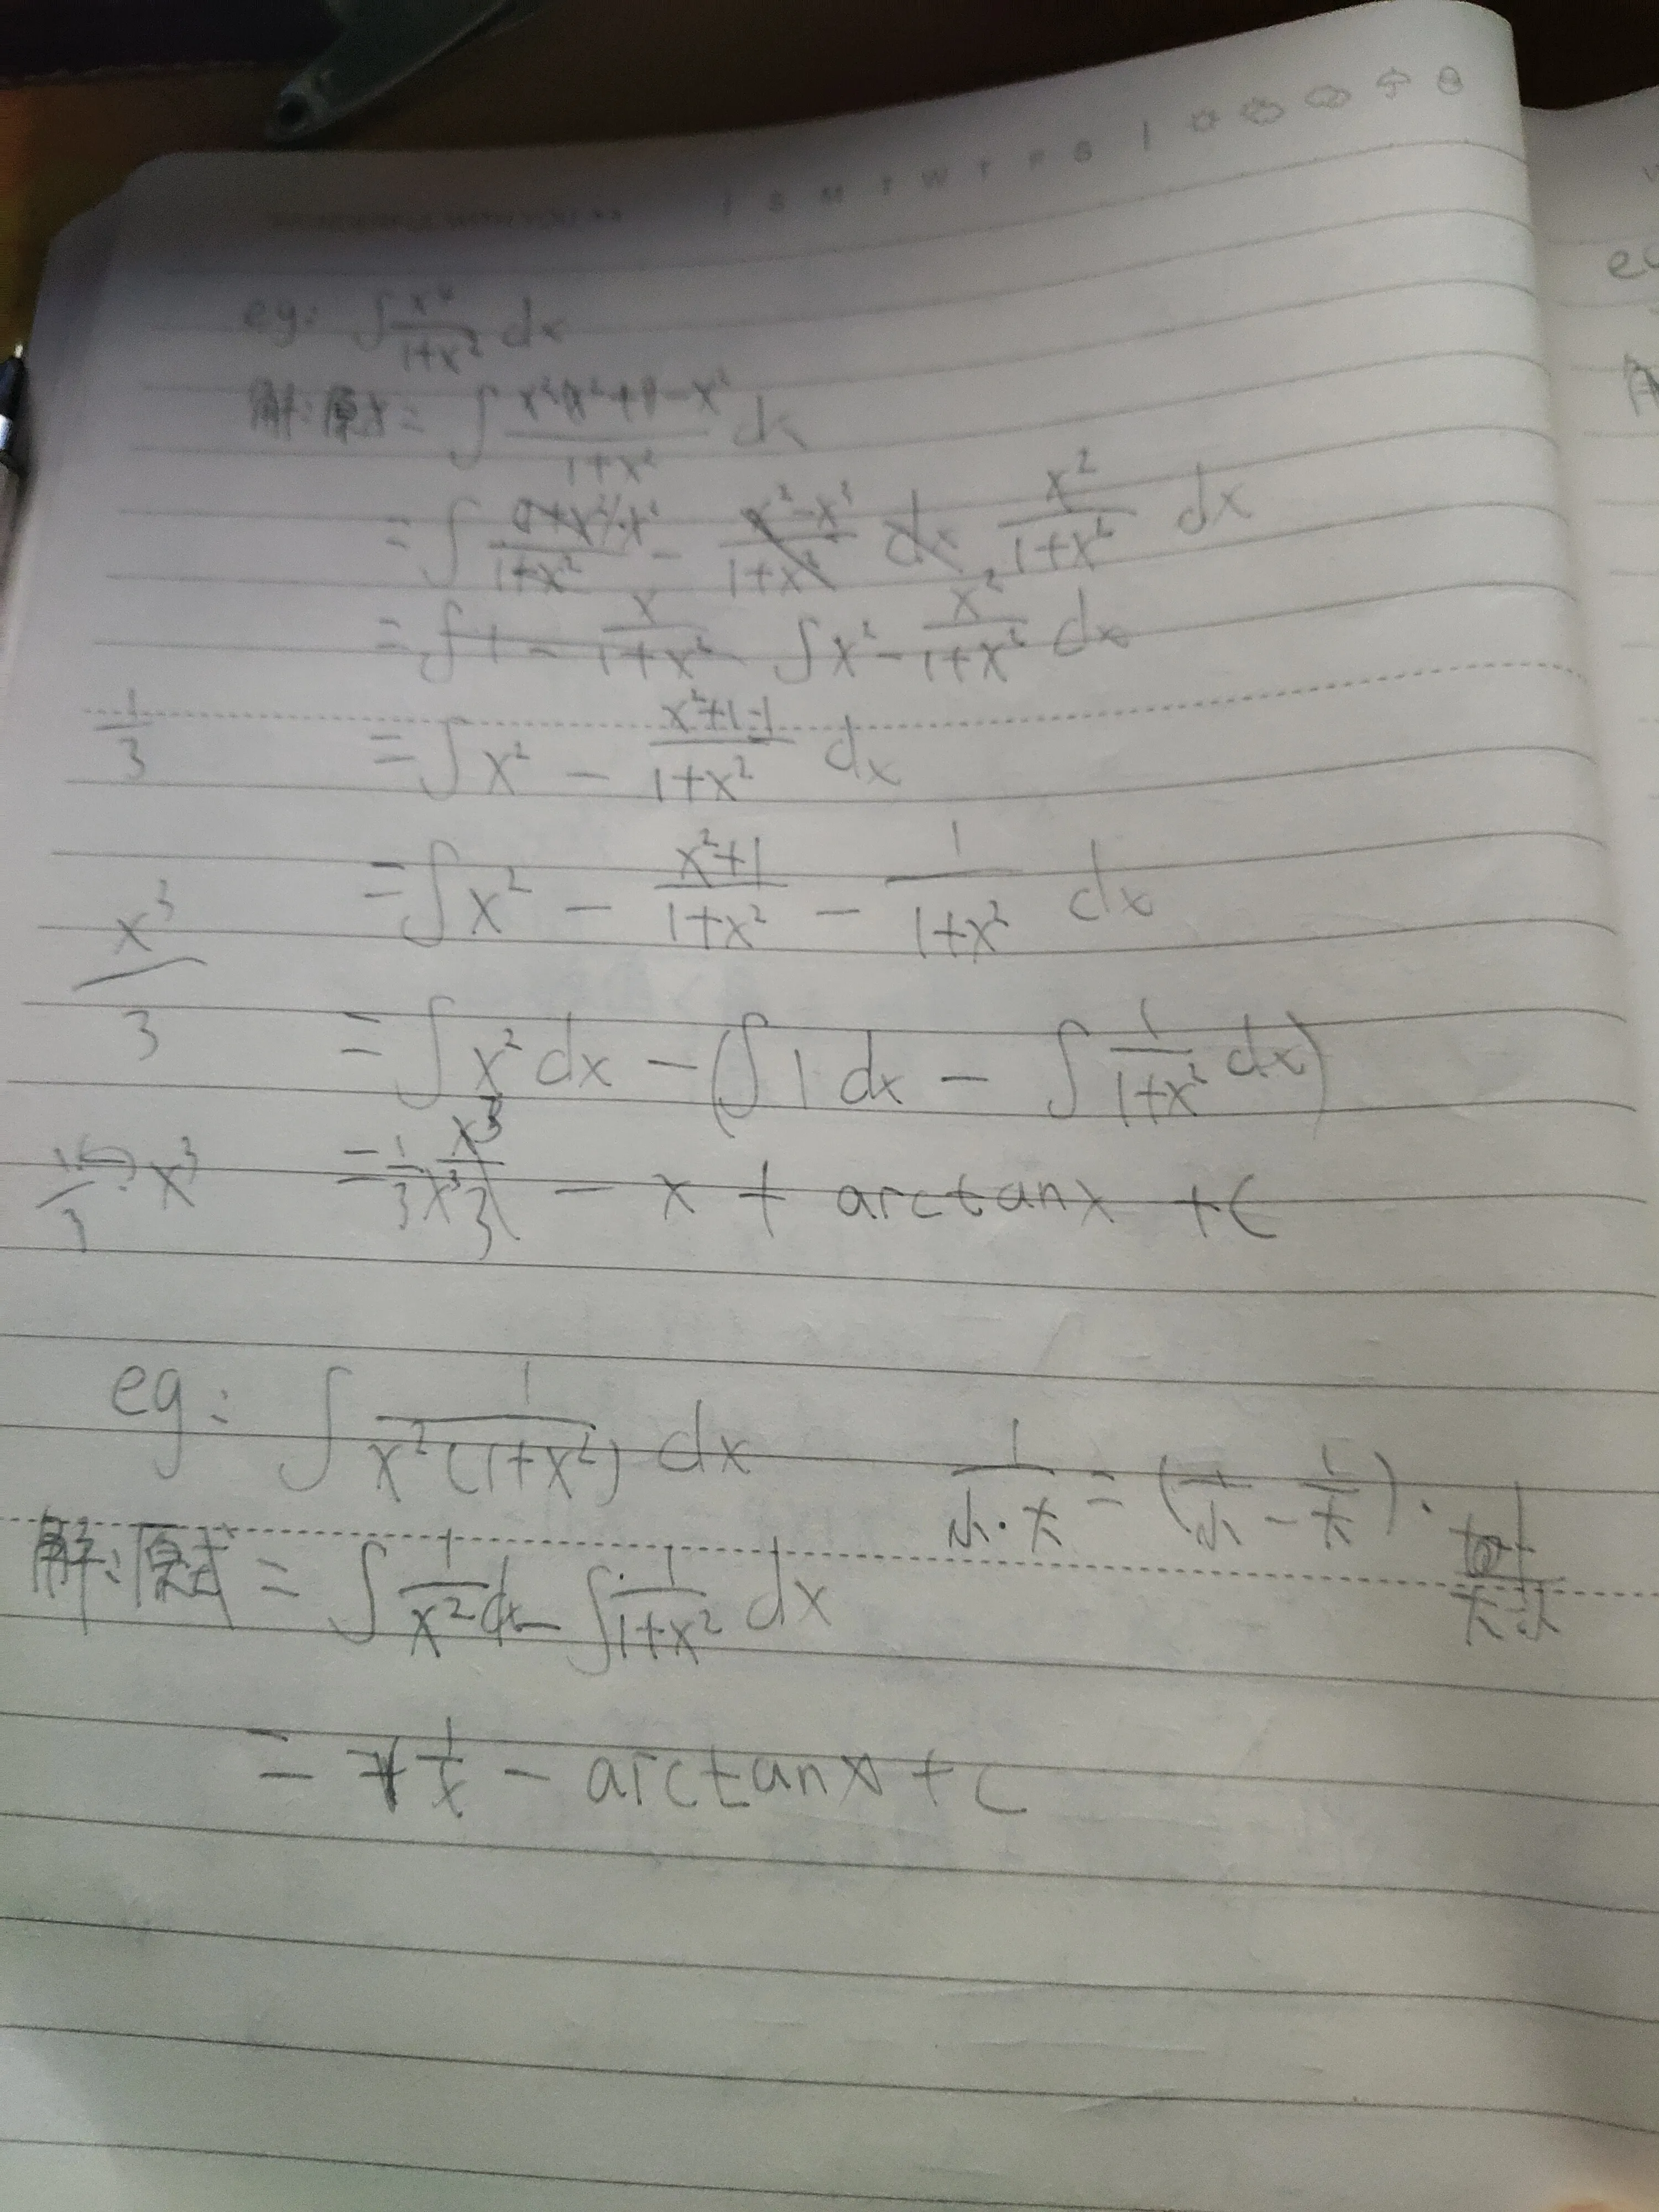 S M T W T F S
eg: ∫ x⁴/(1+x²) dx
解:原式 = ∫ (x²(x²+1)-x²)/(1+x²) dx
= ∫ x²/(1+x²) dx
= ∫ x² - x²/(1+x²) dx
1/3 = ∫ x² - (x²+1-1)/(1+x²) dx
= ∫ x² - (x²+1)/(1+x²) - 1/(1+x²) dx
x³/3 = ∫ x² dx - (∫ 1 dx - ∫ 1/(1+x²) dx)
x³ = x³/3 - x + arctanx + C
eg: ∫ 1/(x²(1+x²)) dx
1/(小·大) = (1/小 - 1/大)·1/(大-小)
解:原式 = ∫ 1/x² dx - ∫ 1/(1+x²) dx
= 1/x - arctanx + C